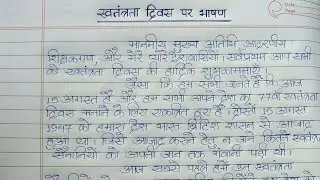 स्वतंत्रता दिवस पर भाषण
माननीय मुख्य अतिथि, आदरणीय
शिक्षकगण और मेरे प्यारे देशवासियों। सर्वप्रथम आप सभी
को स्वतंत्रता दिवस की हार्दिक शुभकामनाएं
जैसा कि हम सभी जानते हैं कि आज
15 अगस्त है और हम सभी अपने देश का 77वां स्वतंत्रता
दिवस मनाने के लिए एकत्रित हुए हैं। दोस्तों 15 अगस्त
1947 को हमारा देश भारत ब्रिटिश शासन से आजाद
हुआ था। जिसे आजाद कराने हेतु न जाने कितने स्वतंत्रता
सेनानियों को अपनी जान तक गंवानी पड़ी थी।
आज सबसे पहले हम उन स्वतंत्रता